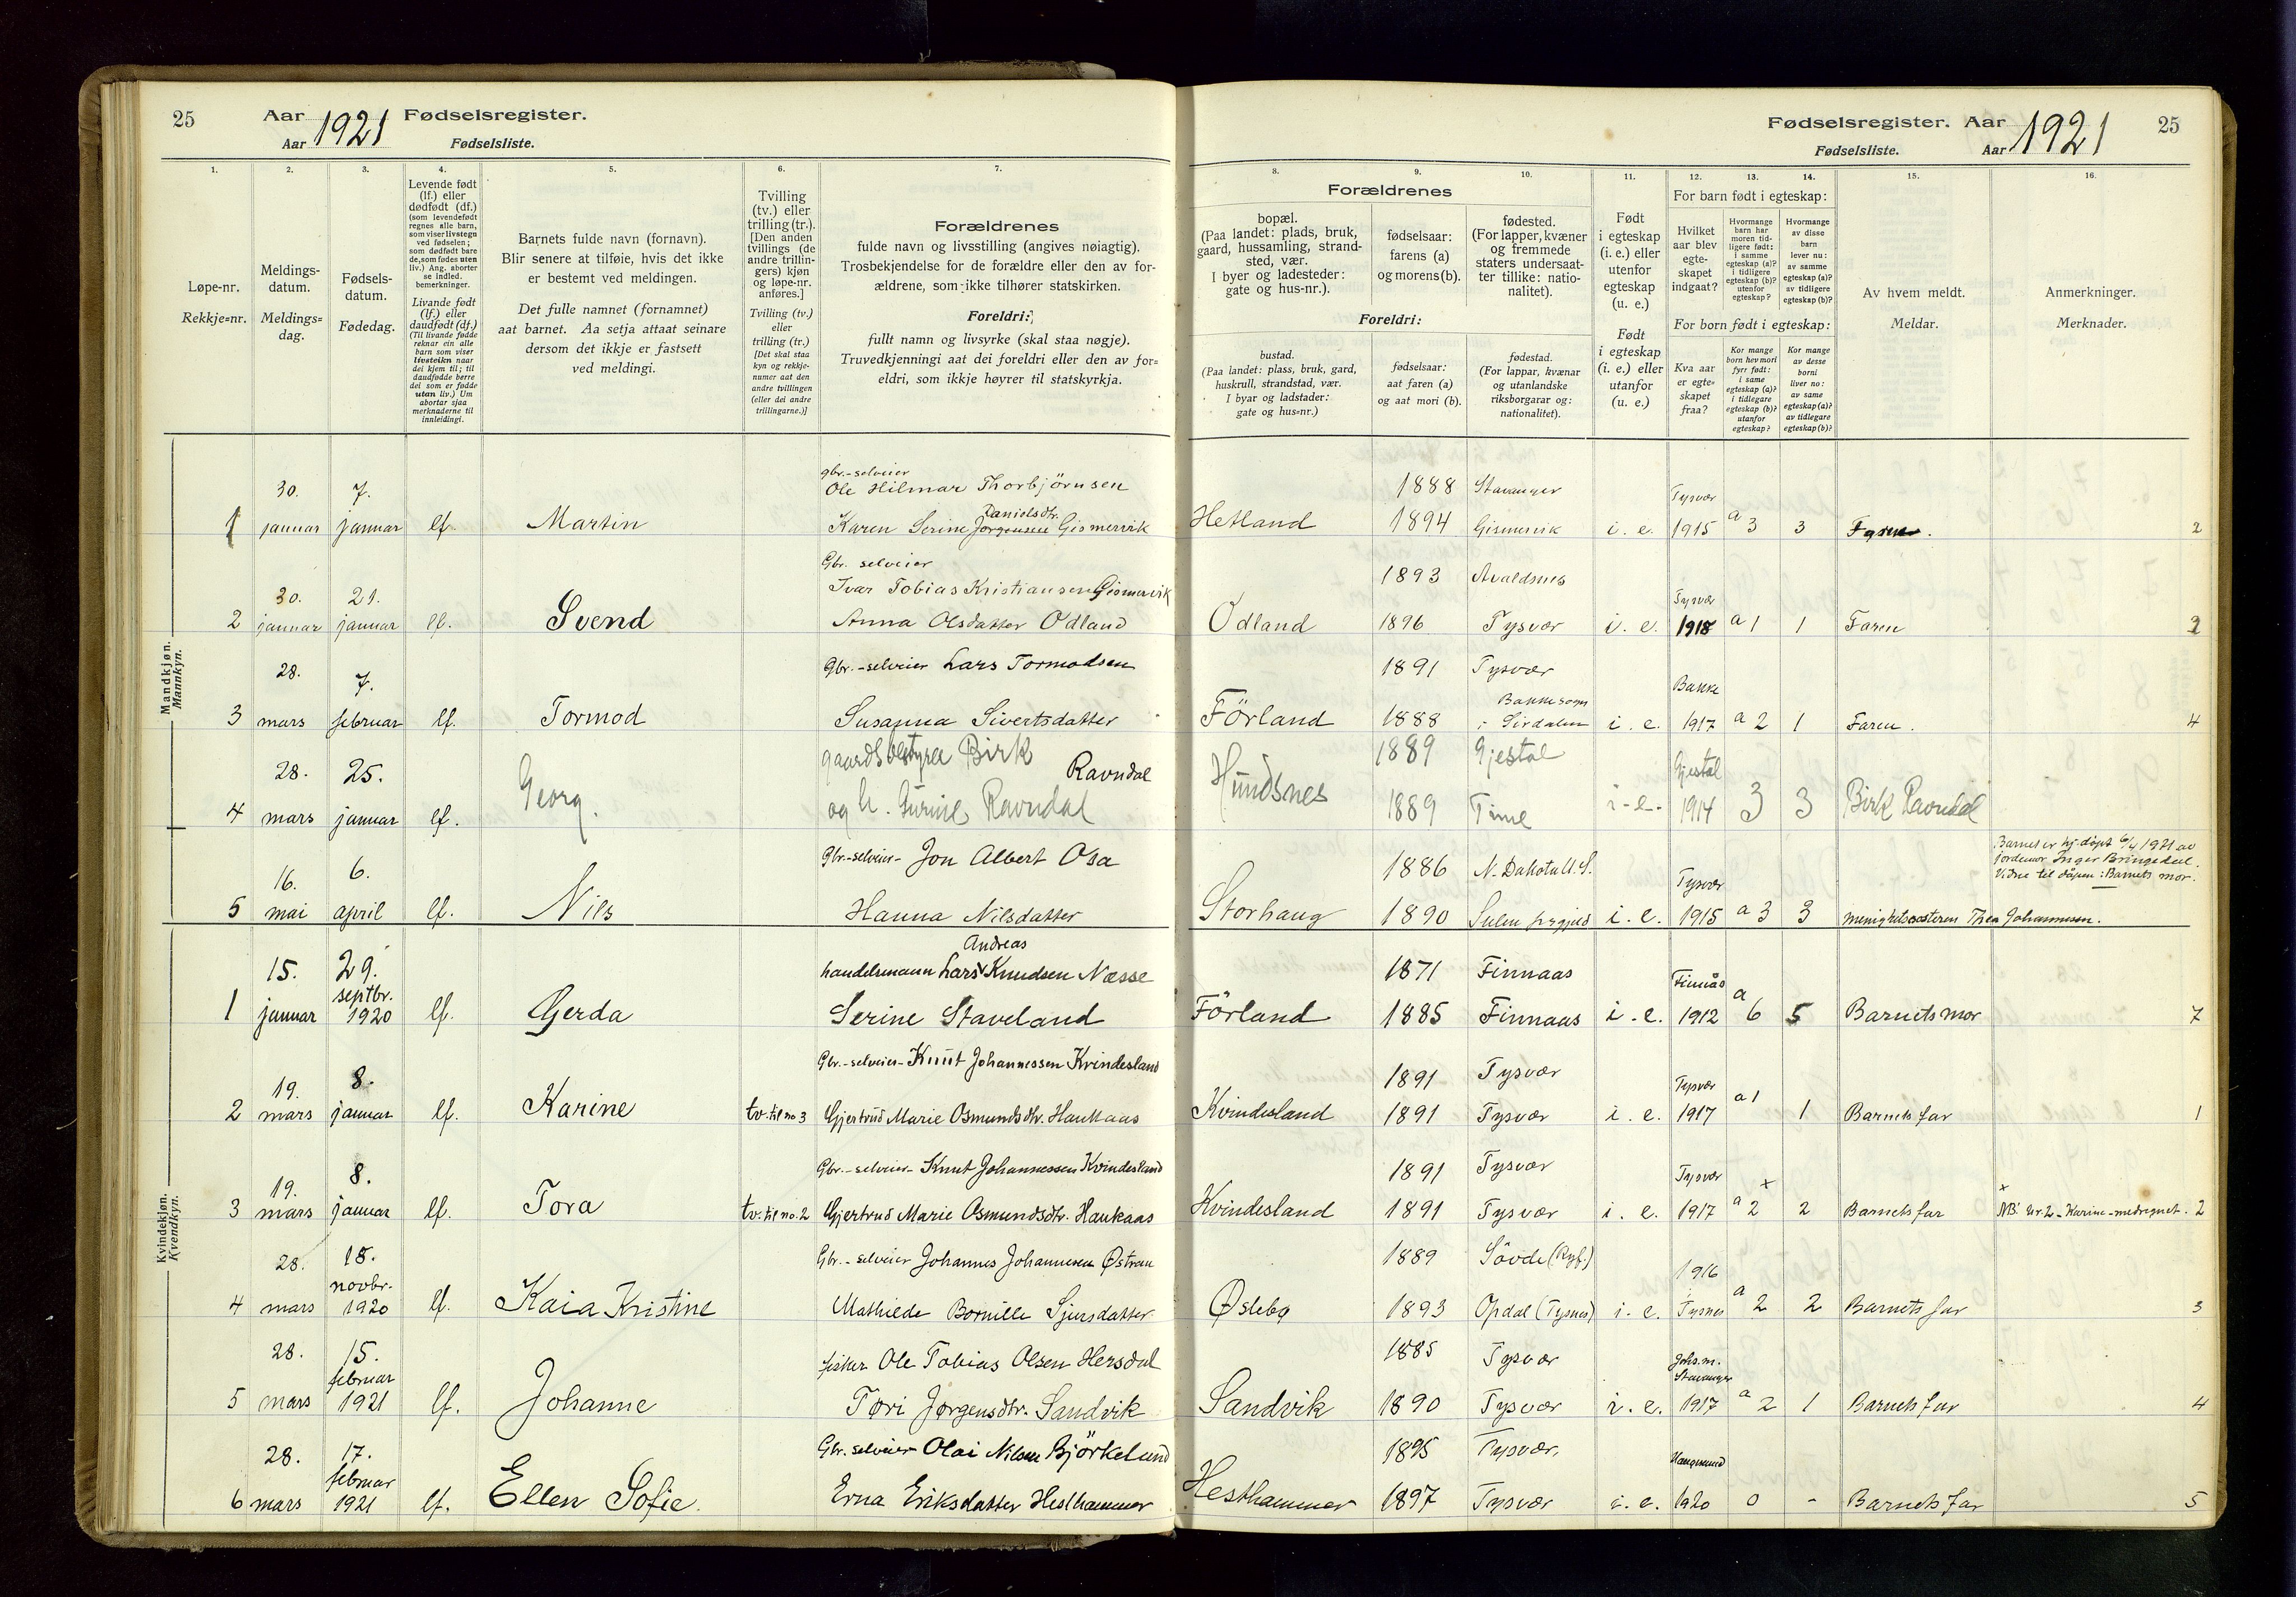 25 Aar 1921 Fødselsregister.
Aar Fødselsliste.
1.
2.
3.
4.
5.
6.
7.
Løpe-nr.
Rekkje=nr.
Meldings-
datum.
Meldings=
dag.
Fødsels-
datum.
Fødedag.
Levende født
(lf.) eller
dødfødt (df.)
(som levendefødt
regnes alle barn,
som viser livstegn
ved fødselen;
som dødfødt bare
de, som fødes uten
liv.) Ang. aborter
se indled.
bemerkninger.
Livande født
(lf.) eller
daudfødt (df.)
(Til livande fødde
reknar ein alle
barn som viser
livsteikn naar
dei kjem til; til
daudfødde berre
dei som er fødde
utan liv.) Um
abortar sjaa
merknaderne til
innleidingi.
Barnets fulde navn (fornavn).
Blir senere at tilføie, hvis det ikke
er bestemt ved meldingen.
Det fulle namnet (fornamnet)
aat barnet. Aa setja attaat seinare
dersom det ikkje er fastsett
ved meldingi.
Tvilling
(tv.) eller
trilling (tr.).
[Den anden
tvillings (de
andre trillin-
gers) kjøn
og løpe-nr.
anføres.]
Tvilling (tv.)
eller
trilling (tr.)
[Det skal staa
kyn og rekkje-
numer aat den
andre tvillingen
(eller dei andre
trillingarne.)]
Forældrenes
fulde navn og livsstilling (angives nøiagtig).
Trosbekjendelse for de forældre eller den av for-
ældrene, som ikke tilhører statskirken.
Foreldri:
fullt namn og livsyrke (skal staa nøgje).
Truvedkjenningi aat dei foreldri eller den av for=
eldri, som ikkje høyrer til statskyrkja.
Fødselsregister. Aar 1921 25
Fødselsliste. Aar
8.
9.
10.
11.
12.
13.
14.
15.
16.
Forældrenes
bopæl.
(Paa landet: plads, bruk,
gaard, hussamling, strand-
sted, vær.
I byer og ladesteder:
gate og hus-nr.).
fødselsaar:
farens (a)
og morens (b).
fødested.
(For lapper, kvæner
og fremmede
staters undersaat-
ter tillike: natio-
nalitet).
Foreldri:
bustad.
(Paa landet: plass, bruk, gard,
huskrull, strandstad, vær.
I byar og ladstader:
gate og hus=nr.)
fødselsaar:
aat faren (a)
og aat mori (b).
fødestad.
(For lappar, kvænar
og utanlandske
riksborgarar og:
nationalitet).
Født
i egteskap
(i. e.) eller
utenfor
egteskap
(u. e.)
Født
i egteskap
(i. e.) eller
utanfor
(u. e.)
For barn født i egteskap:
Hvilket
aar blev
egte-
skapet
indgaat?
Hvormange
barn har
moren tid-
ligere født:
i samme
egteskap (a)?
i tidligere
egteskap (b)?
utenfor
egteskap?
Hvormange
av disse
barn
lever nu:
av samme
egteskap (a)?
av tidligere
egteskap (b)?
For born født i egteskap:
Kva aar
er egte=
skapet
fraa?
Kor mange
born hev mori
fyrr født:
i same
egteskap (a)?
i tidlegare
egteskap (b)?
utanfor
egteskap?
Kor mange
av desse
borni
liver no:
av same
egteskap (a)?
av tidlegare
egteskap (b)?
Av hvem meldt.
Meldar.
Anmerkninger.
Merknader.
Mandkjøn.
Mannkyn.
gbr.-selveier
30. 7. Ole Hilmar Thorbjörnsen 1888 Stavanger Tysvær
Danielsdtr.
1 januar januar lf. Martin Karen Serine Jørgensen Gismervik Hetland 1894 Gismervik i. e. 1915 a 3 3 Faren. 2
Gbr. selveier
30. 21. Ivar Tobias Kristiansen Gismervik 1893 Avaldsnes Tysvær
2 januar januar lf. Svend Anna Olsdatter Ødland Ødland 1896 Tysvær i. e. 1918 a 1 1 Faren
28. 7. Gbr.-selveier Lars Tormodsen 1891 Tysvær Bakke
Bakke sogn
3 mars februar lf. Tormod Susanna Sivertsdatter Förland 1888 i Sirdalen i. e. 1917 a 2 1 Faren. 4
28. 25. gaardsbestyrer Birk Ravndal 1889 Gjestal Gjestal
4 mars januar lf. Georg. og h. Gurine Ravndal Hundsnes 1889 Time i. e. 1914 3 3 Birk Ravndal
16. 6. Gbr.-selveier- Jon Albert Osa 1886 N. Dakota U. S. Tysvær Barnet er hj. døpt 6/4 1921 av
jordmor Inger Bringedal.
Vidne til dåpen: Barnets mor.
5 mai april lf. Nils Hanna Nilsdatter Storhaug 1890 Sulen prgjeld i. e. 1915 a 3 3 menighetssøsteren Thea Johannesen.
Kvindekjøn.
Kvendkyn.
Andreas
15. 29. handelsmann Lars Knudsen Næsse 1871 Finnaas Finnås
septbr.
1 januar 1920 lf. Gerda Serine Staveland Förland 1885 Finnaas i. e. 1912 a 6 5 Barnets mor 7
19. 8. Gbr.-selveier- Knut Johannessen Kvindesland 1891 Tysvær Tysvær
2 mars januar lf. Karine tv. til no 3 Gjertrud Marie Osmundsdtr. Haukaas Kvindesland 1891 Tysvær i. e. 1917 a 1 1 Barnets far 1
19. 8. Gbr.-selveier- Knut Johannessen Kvindesland 1891 Tysvær Tysvær x x
3 mars januar lf. Tora tv. til no. 2 Gjertrud Marie Osmundsdtr. Haukaas Kvindesland 1891 Tysvær i. e. 1917 a 2 2 Barnets far NB! Nr. 2 - Karine - medregnet. 2
28. 18. Gbr.-selveier Johannes Johannesen Østrem 1889 Såvde (Ryf.) 1916
novbr.
4 mars 1920 lf. Kaia Kristine Mathilde Bornille Sjursdatter Øslebø 1893 Opdal (Tysnes) i. e. Tysnes a 2 2 Barnets far 3
28. 15. fisker Ole Tobias Olsen Hersdal 1885 Tysvær Johs. m. Stavanger
februar
5 mars 1921 lf. Johanne Tøri Jørgensdtr. Sandvik Sandvik 1890 Tysvær i. e. 1917 a 2 1 Barnets far 4
28. 17. Gbr. selveier Olai Nilsen Björkelund 1895 Tysvær. Haugesund
februar
6 mars 1921 lf. Ellen Sofie. Erna Eriksdatter Hesthammer Hesthammer 1897 Tysvær i. e. 1920 0 - Barnets far 5